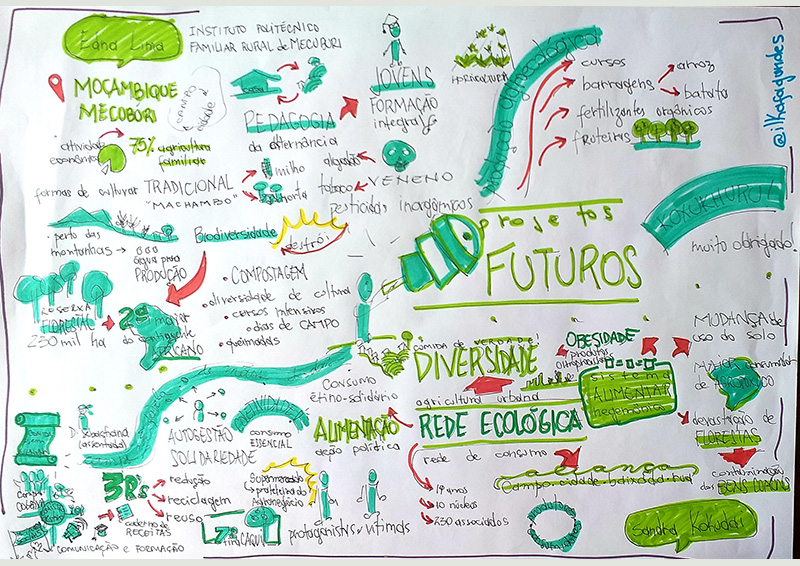 Edna Lima
INSTITUTO POLITÉCNICO
FAMILIAR RURAL de MECUBÚRI
MOÇAMBIQUE
MECUBÚRI
campo
cidade
casa
PEDAGOGIA
da alternância
JOVENS
FORMAÇÃO
integral
HORTICULTURA
agroecológica
cursos
barragens
arroz
batata
fertilizantes orgânicos
fruteiras
@ilkafagundes
• atividade
econômica
75% agricultura
familiar
formas de cultivar
TRADICIONAL
"MACHAMBO"
milho
horta
algodão
tabaco
VENENO
pesticidas inorgânicos
• perto das
montanhas →
água para
PRODUÇÃO
Biodiversidade
destrói
RESERVA
FLORESTAL
230 mil ha
2ª maior
do continente
AFRICANO
• COMPOSTAGEM
• diversidade de cultura
• cursos intensivos
• dias de CAMPO
• queimadas
projetos
FUTUROS
KOXUKHURU!
muito obrigado!
COMIDA de VERDADE!
DIVERSIDADE
agricultura urbana
OBESIDADE
produtos
sistema
ALIMENTAR
hegemônico
MUDANÇA de
uso do solo
MAIOR consumidor
de AGROTÓXICO
devastação de
FLORESTAS
contaminação
dos BENS COMUNS
CONSUMO
ético-solidário
ALIMENTAÇÃO
ação política
REDE ECOLÓGICA
rede de consumo
19 anos
10 núcleos
230 associados
aliança
campo-cidade-baixada-rural
Sandra Kokudai
AUTOGESTÃO
SOLIDARIEDADE
consumo
ESSENCIAL
3R's
redução
reciclagem
reuso
caderno de
RECEITAS
COMUNICAÇÃO e FORMAÇÃO
Supermercado
prateleira do
Agronegócio
protagonistas x vítimas